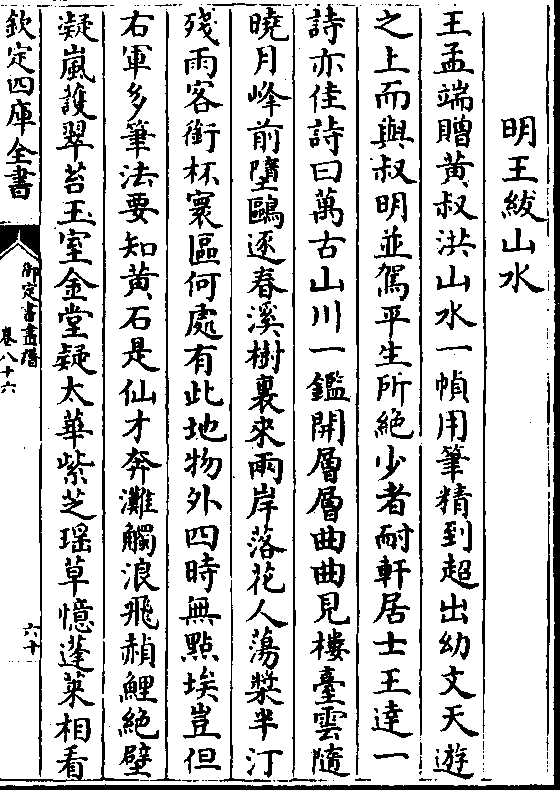 明王紱山水
王孟端贈黃叔洪山水一幀用筆精到超出幼文天遊
之上而與叔明並駕平生所絶少者耐軒居士王達一
詩亦佳詩曰萬古山川一鑑開層層曲曲見樓臺雲隨
曉月峰前墮鷗逐春溪樹裏來兩岸落花人蕩槳半汀
殘雨客銜杯寰區何處有此地物外四時無點埃豈但
右軍多筆法要知黄石是仙才奔灘觸浪飛赬鯉絶壁
凝嵐護翠苔玉室金堂疑太華紫芝瑶草憶蓬萊相看
欽定四庫全書
御定書畫譜
卷八十六
六十